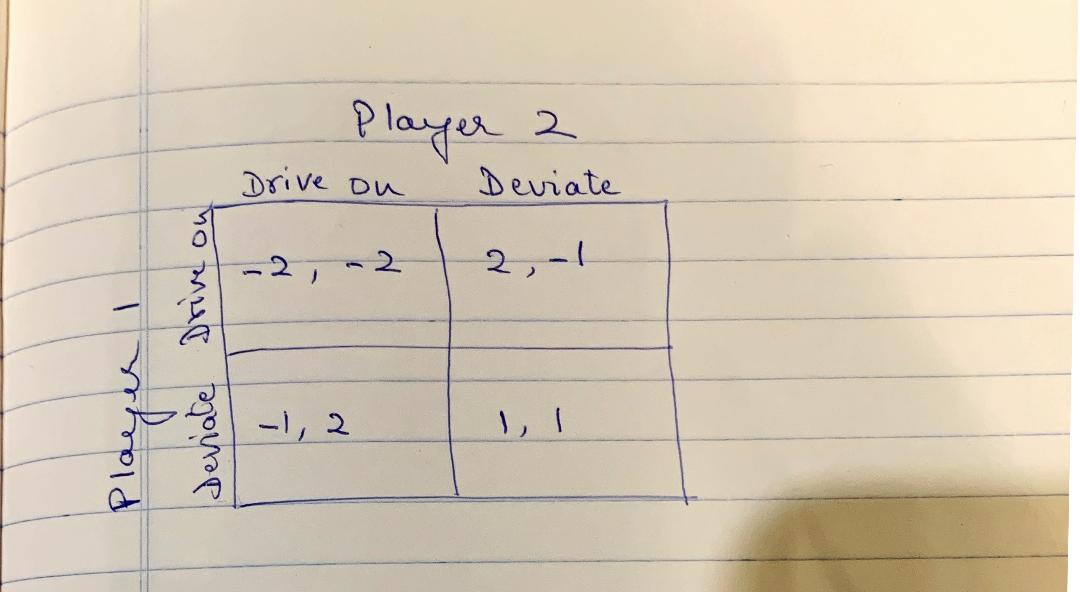 Player 2
Drive on Deviate
Player 1
Drive on
-2, -2 2, -1
Deviate
-1, 2 1, 1